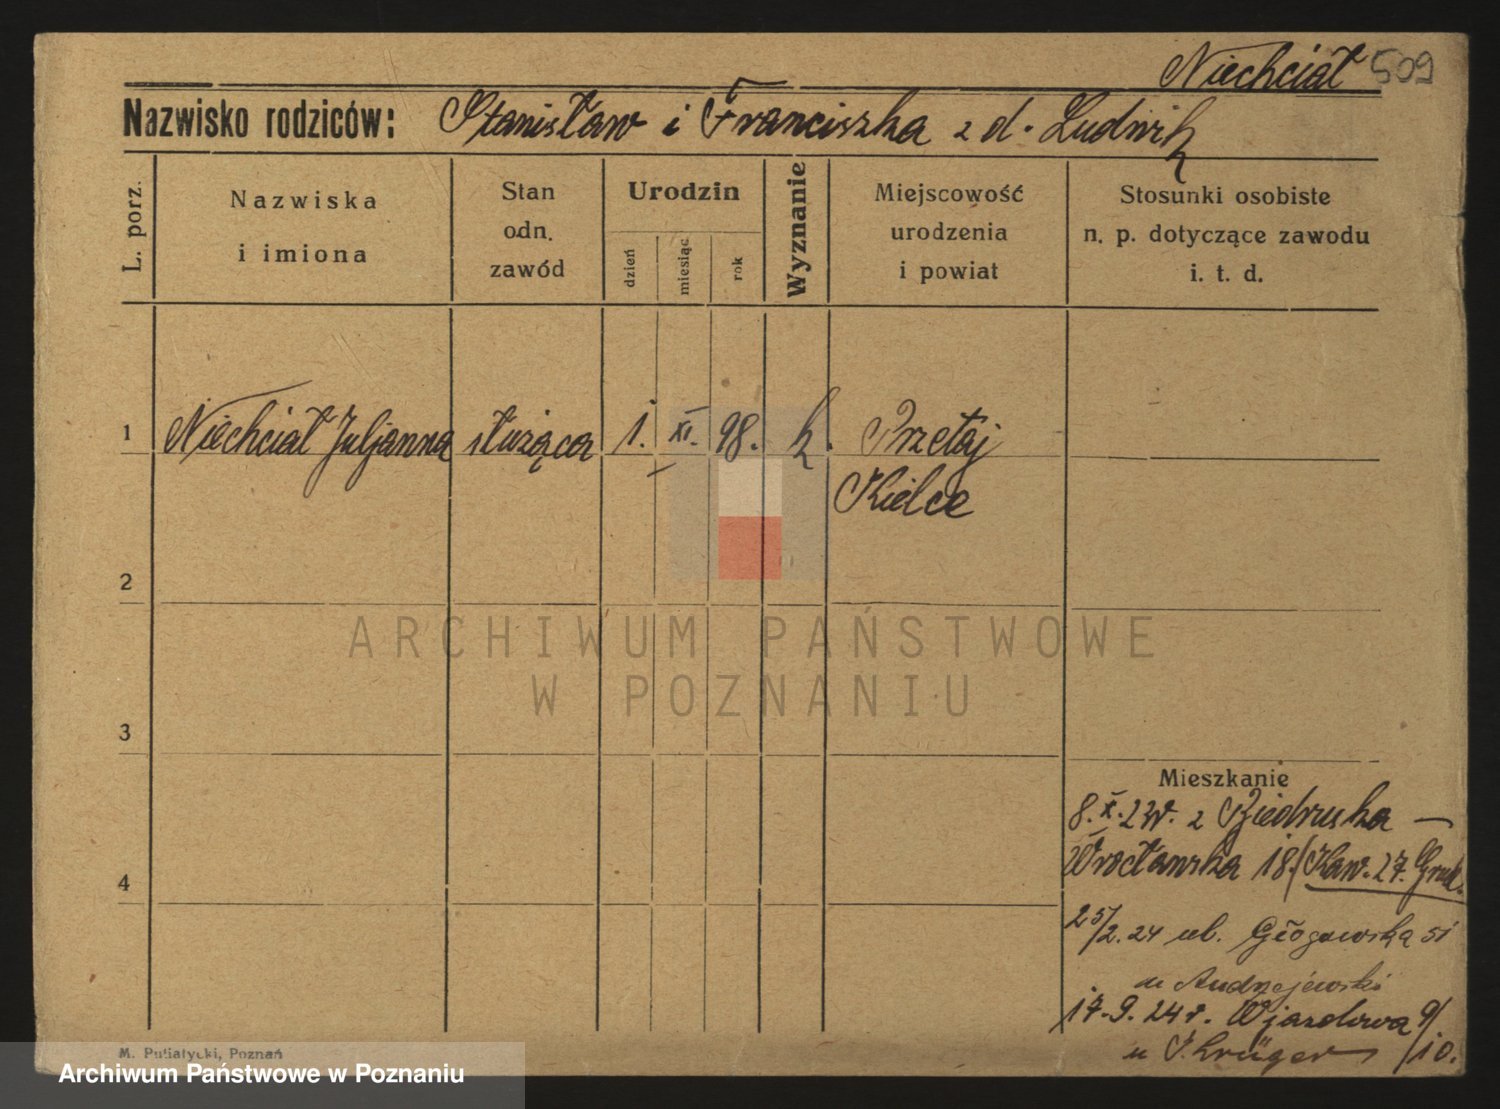 Niechciał 509
Nazwisko rodziców: Stanisław i Franciszka z d. Ludwik
L. porz.
Nazwiska
i imiona
Stan
odn.
zawód
Urodzin
dzień
miesiąc
rok
Wyznanie
Miejscowość
urodzenia
i powiat
Stosunki osobiste
n. p. dotyczące zawodu
i. t. d.
1 Niechciał Juljanna służąca 1. XI. 98. k. Przetaj
Kielce
2
ARCHIWUM PAŃSTWOWE
W POZNANIU
3
Mieszkanie
8. X. 23r. z Biedruska —
Wrocławska 18.
4
25/2. 24 ul. Głogowska 51
u Andrzejewski
17. 9. 24 r. Wjazdowa 9/
u Krüger /10.
M. Putiatycki, Poznań
Archiwum Państwowe w Poznaniu